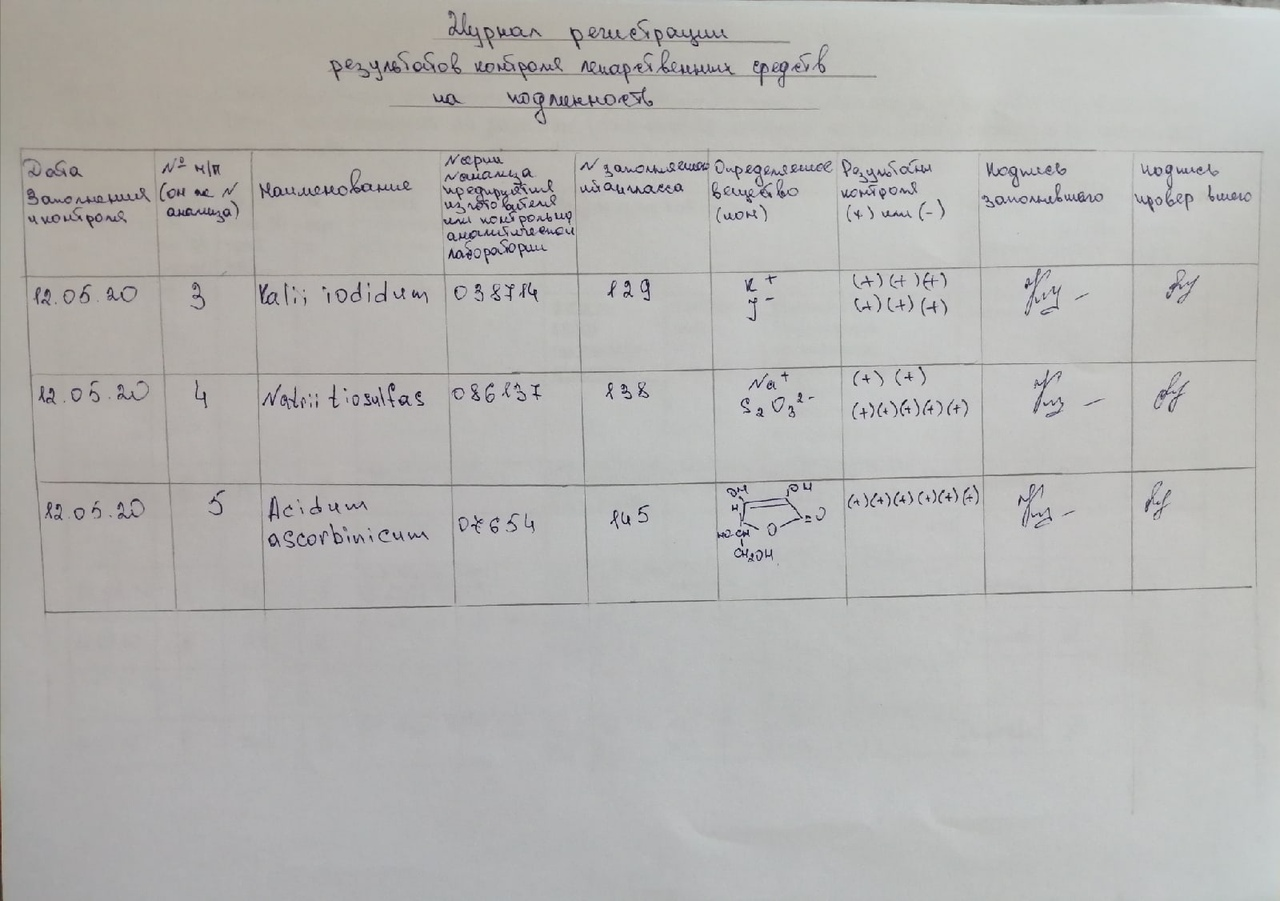 Журнал регистрации
результатов контроля лекарственных средств
на подлинность
Дата
заполнения
и контроля
№ п/п
(он же N
анализа)
Наименование
N серии
N анализа
предприятия
изготовителя
или контрольно
аналитической
лаборатории
N заполняемого
штангласса
Определяемое
вещество
(ион)
Результаты
контроля
(+) или (-)
Подпись
заполнявшего
Подпись
проверившего
12.05.20
3
Kalii iodidum
038714
129
K⁺
J⁻
(+) (+) (+)
(+) (+) (+)
12.05.20
4
Natrii tiosulfas
086137
138
Na⁺
S₂O₃²⁻
(+) (+)
(+) (+) (+) (+) (+)
12.05.20
5
Acidum
ascorbinicum
07654
145
OH OH
H
O =O
HO-CH
CH₂OH
(+) (+) (+) (+) (+) (+)